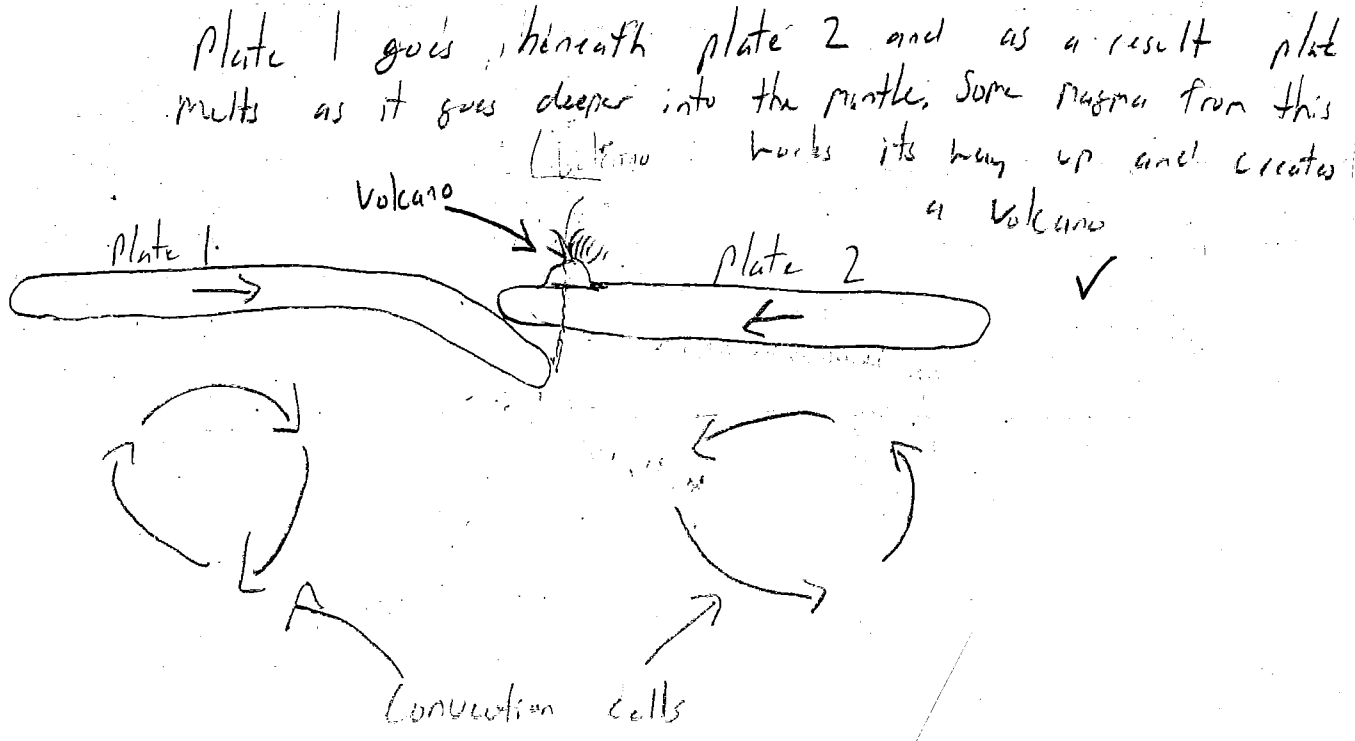 Plate 1 goes beneath plate 2 and as a result plate
melts as it goes deeper into the mantle. Some magma from this
works its way up and creates
a volcano
Volcano
Plate 1
Plate 2
Convection cells